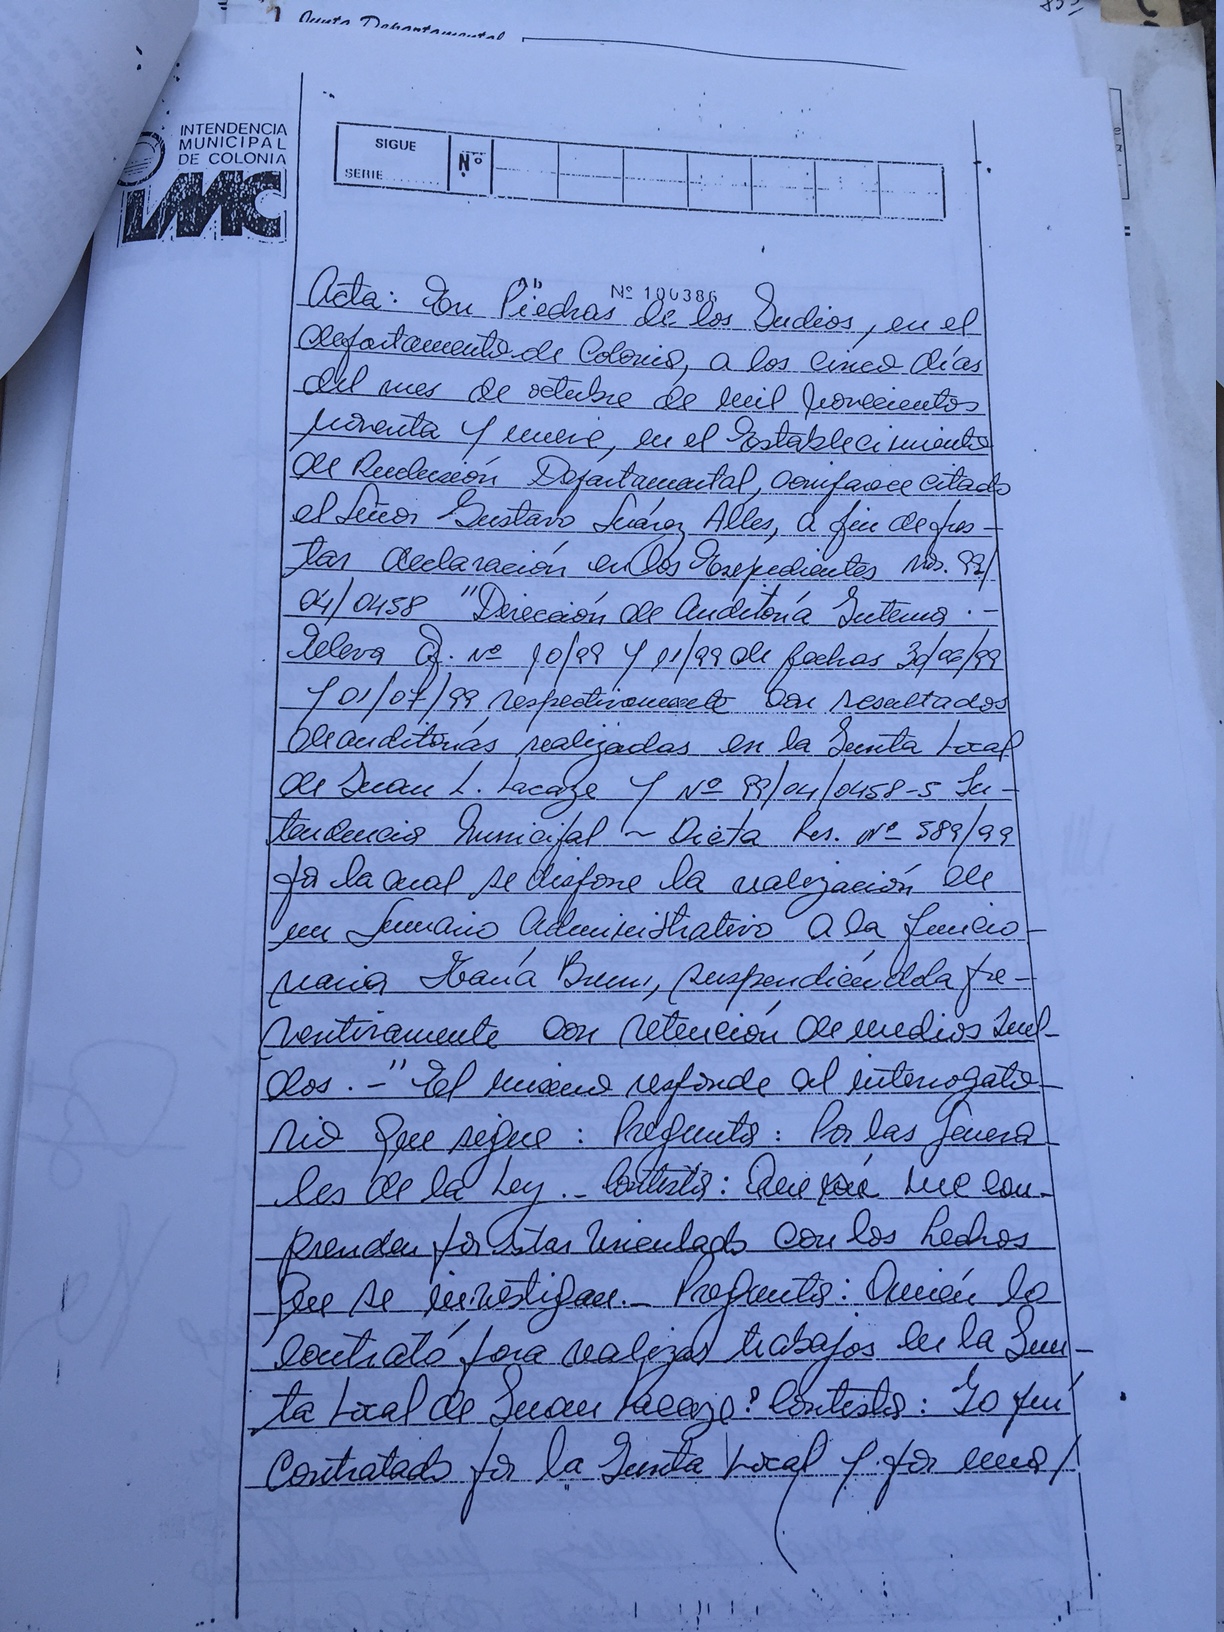 Junta Departamental
INTENDENCIA
MUNICIPAL
DE COLONIA
IMC
SIGUE
SERIE ........
Nº
Ab Nº 100386
Acta: En Piedras de los Indios, en el
departamento de Colonia, a los cinco días
del mes de octubre de mil novecientos
noventa y nueve, en el Establecimiento
de Reclusión Departamental, comparece citado
el Señor Gustavo Suárez Alles, a fin de pres-
tar declaración en los Expedientes Nos. 99/
04/0458 "Dirección de Auditoría Interna .-
Eleva Of. Nº 10/99 y 11/99 de fechas 30/06/99
y 01/07/99 respectivamente con resultados
de auditorías realizadas en la Junta Local
de Juan L. Lacaze y Nº 99/04/0458-5 In-
tendencia Municipal ~ Dicta Res. Nº 589/99
por la cual se dispone la realización de
un Sumario Administrativo a la funcio-
naria María, suspendiéndola pre-
ventivamente con retención de medios suel-
dos .-" El mismo responde al interrogato-
rio que sigue: Pregunta: Por las Genera
les de la Ley._ Contesta: Que me com-
prenden por estar vinculado con los hechos
que se investigan._ Pregunta: Quién lo
contrató para realizar trabajos en la Jun-
ta Local de Juan Lacaze? Contesta: Yo fuí
Contratado por la Junta Local y por una/